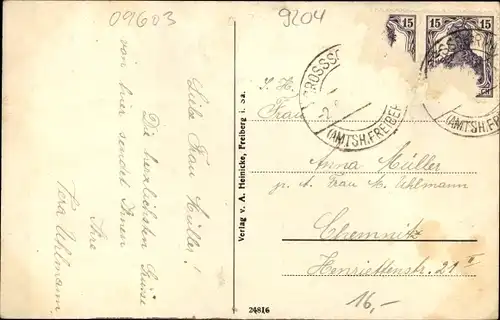 09603
9204
15
15
GROSSSC
(AMTSH.FREIBER
(AMTSH.FREI
Liebe Frau Müller!
Die herzlichsten Grüsse
von hier sendet Ihnen
Ihre
Vera Uhlmann
Verlag v. A. Heinicke, Freiberg i. Sa.
S. H.
Frau
Anna Müller
p. A. Frau M. Uhlmann
Chemnitz
Henriettenstr. 21 II
16,-
24816